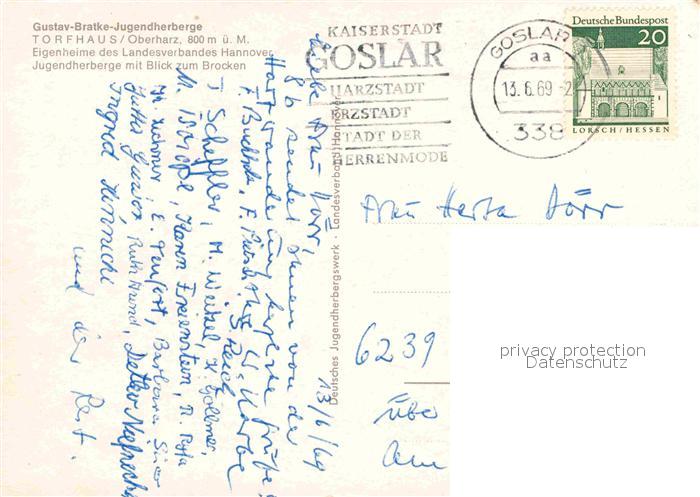 Gustav-Bratke-Jugendherberge
TORFHAUS/Oberharz, 800 m ü. M.
Eigenheime des Landesverbandes Hannover
Jugendherberge mit Blick zum Brocken
KAISERSTADT
GOSLAR
HARZSTADT
ERZSTADT
STADT DER
HERRENMODE
GOSLAR
aa
13.6.69
338
Deutsche Bundespost
20
LORSCH / HESSEN
Deutsches Jugendherbergswerk · Landesverband Hannover
13/6/69
Liebe Frau Dörr,
8b sendet Ihnen von der
Harzwanderung herzliche Grüße!
T. Scheffler, M. Weikel, K. Gollmer,
Karen Freienstein, R.
Barbara
Ruth Hund, Detlev
Ingrid Hinniche
und der Rest.
Frau Herta Dörr
6239
über
Am
privacy protection
Datenschutz